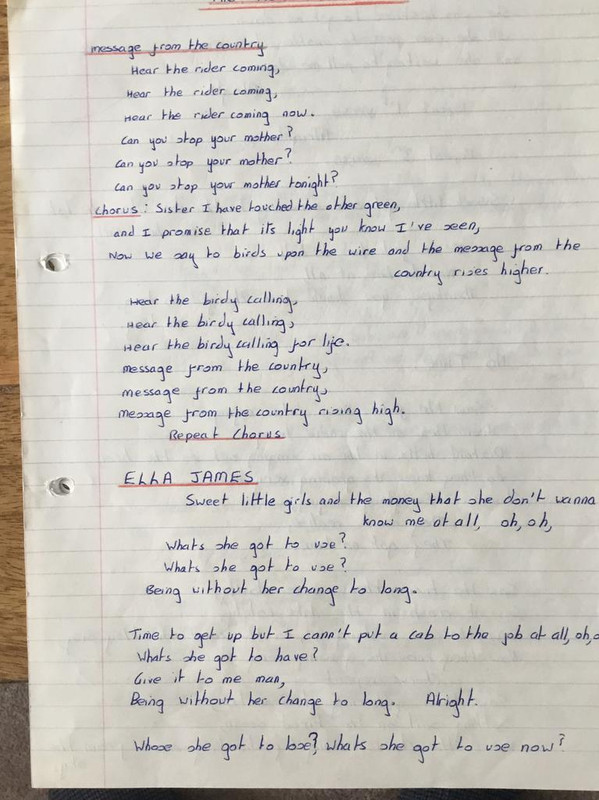 message from the country
Hear the rider coming,
Hear the rider coming,
Hear the rider coming now.
Can you stop your mother?
Can you stop your mother?
Can you stop your mother tonight?
Chorus: Sister I have touched the other green,
and I promise that its light you know I've seen,
Now we say to birds upon the wire and the message from the
country rises higher.
Hear the birdy calling,
Hear the birdy calling,
Hear the birdy calling for life.
message from the country,
message from the country,
message from the country rising high.
Repeat Chorus
ELLA JAMES
Sweet little girls and the money that she don't wanna
know me at all, oh, oh,
Whats she got to use?
Whats she got to use?
Being without her change to long.
Time to get up but I cann't put a cab to tha job at all, oh,
Whats she got to have?
Give it to me man,
Being without her change to long. Alright.
Whose she got to lose? whats she got to use now?